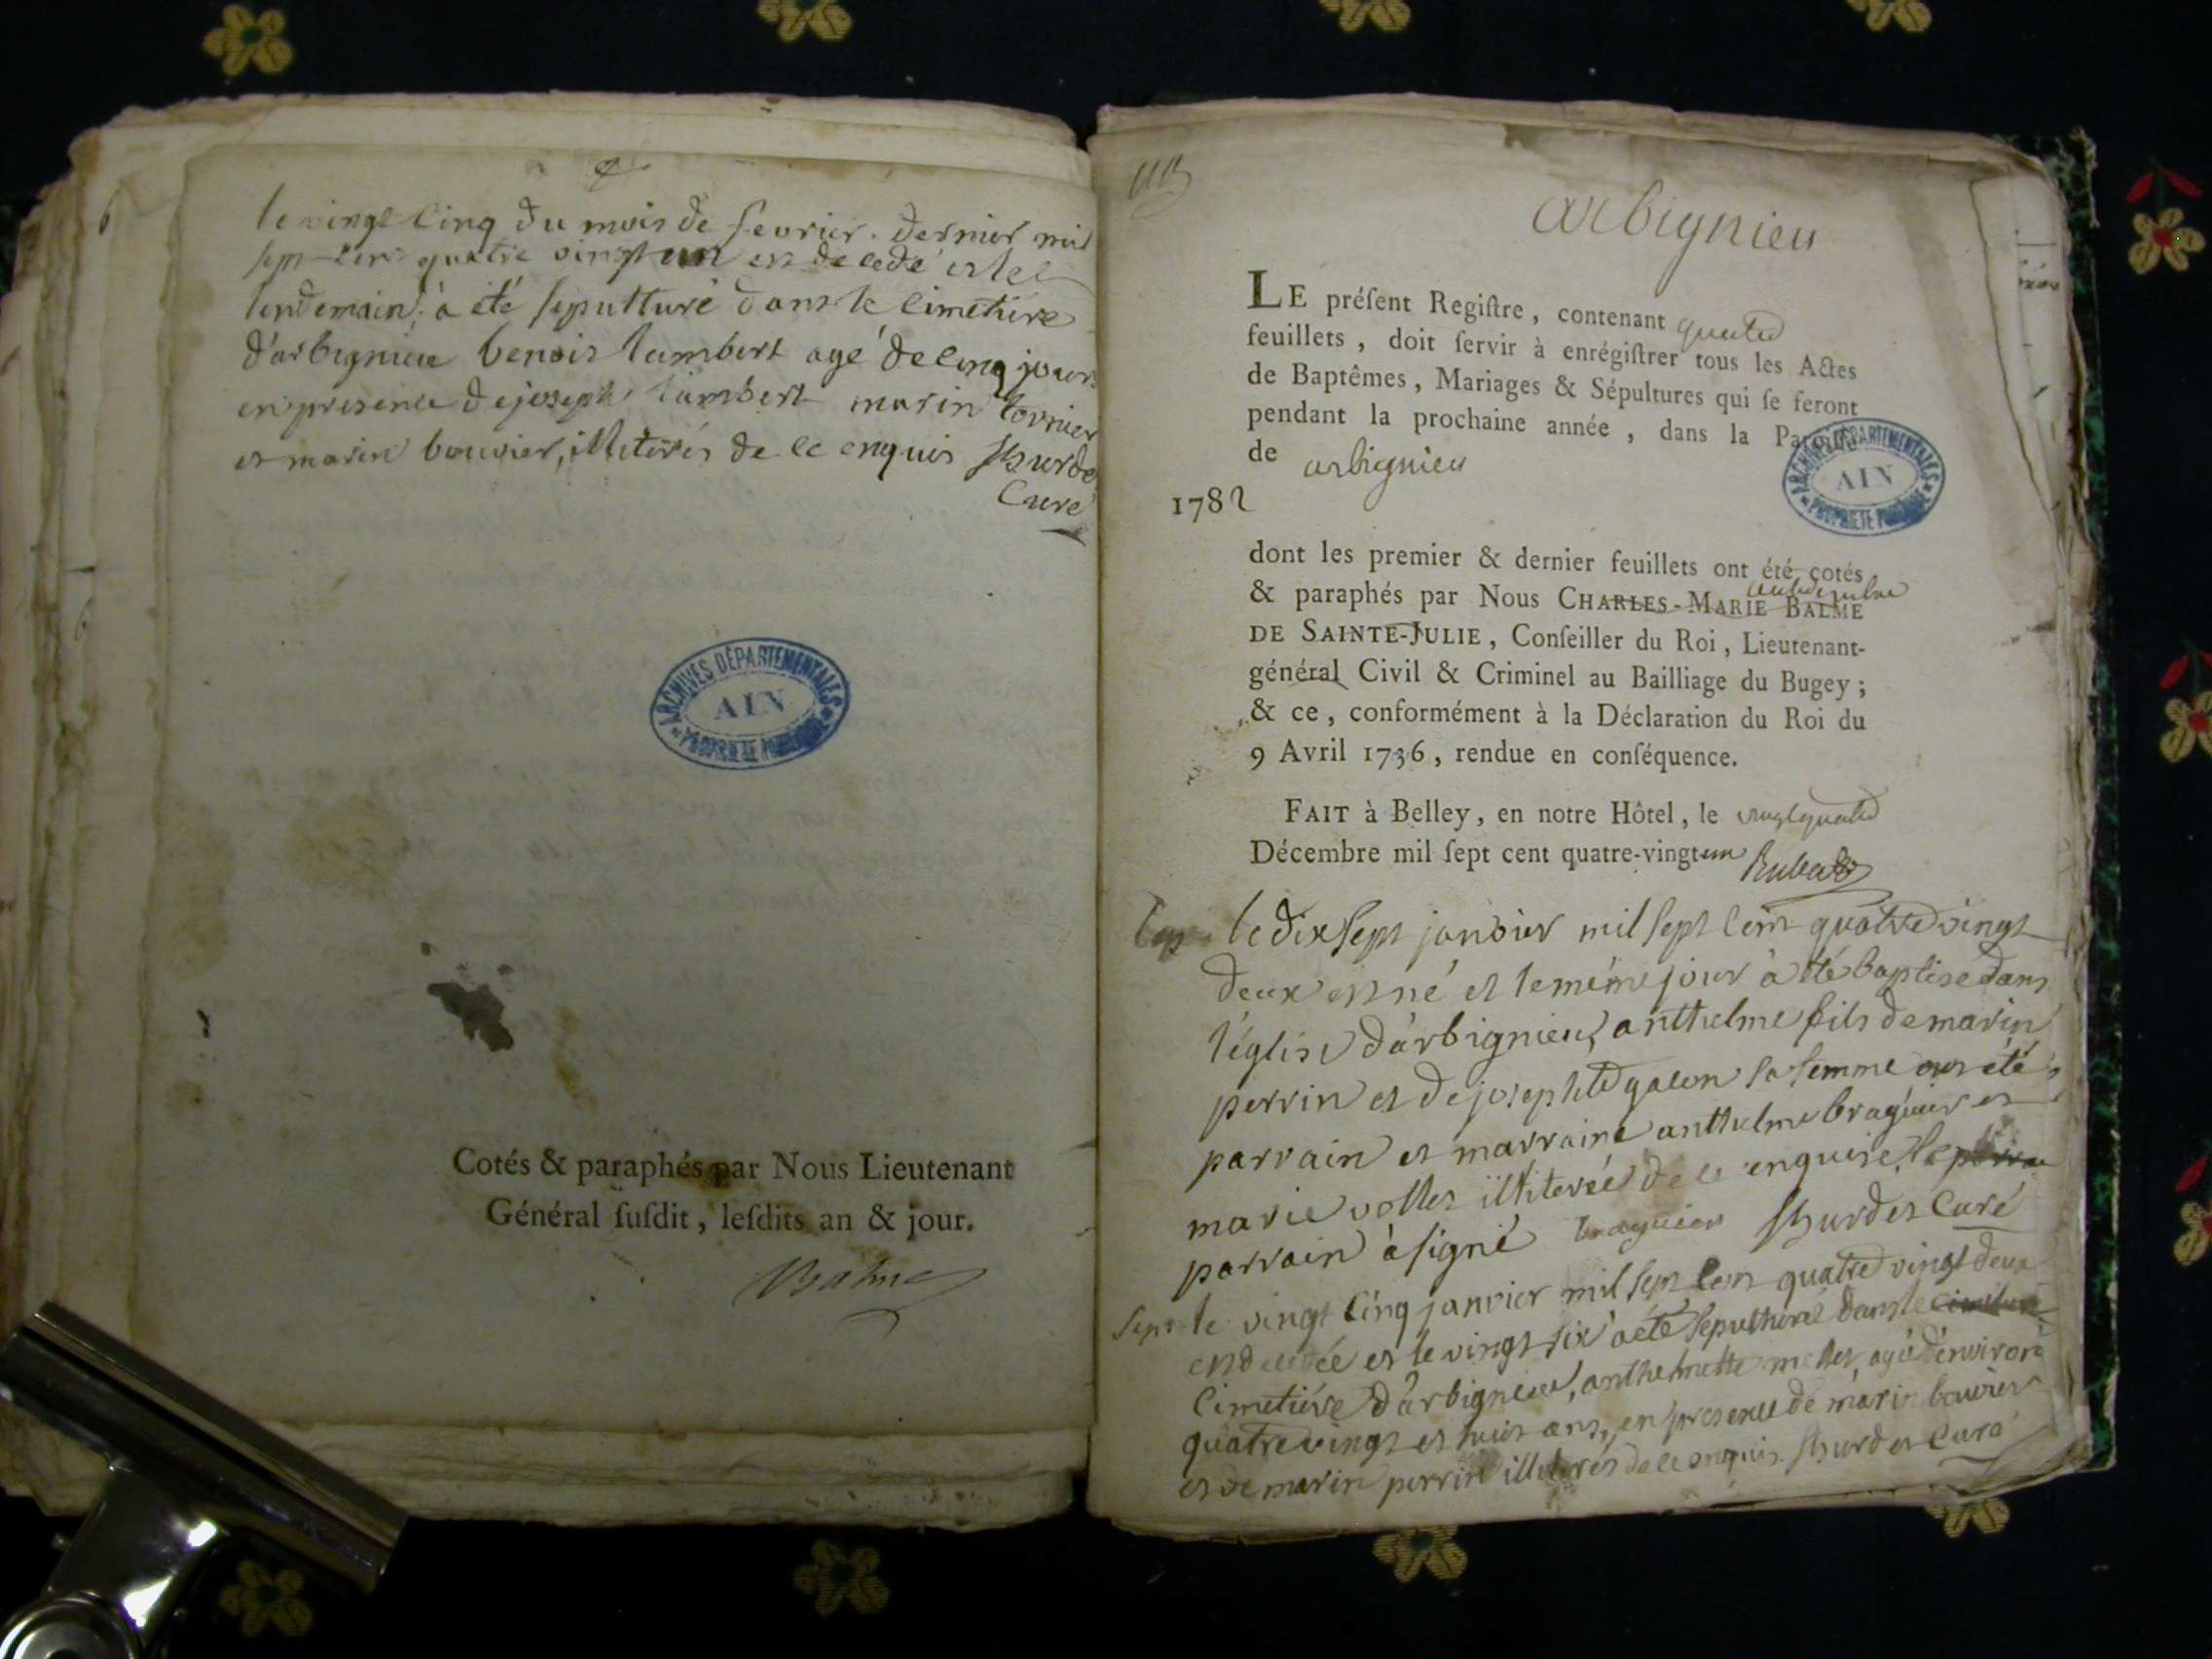 le vingt cinq du mois de fevrier. dernier mil
sept cent quatre vingt un est decedé et le
lendemain à été sepulturé dans le cimetiere
d'arbignieu benoit lambert agé de cinq jours
en presence de joseph lambert marin
et marin bouvier, illiterés de ce enquis
Curé
ARCHIVES DÉPARTEMENTALES
AIN
PROPRIETE PUBLIQUE
Cotés & paraphés par Nous Lieutenant
Général ſuſdit, leſdits an & jour.
Balme
arbignieu
LE préſent Regiſtre, contenant quatre
feuillets, doit ſervir à enrégiſtrer tous les Actes
de Baptêmes, Mariages & Sépultures qui ſe feront
pendant la prochaine année, dans la Paroiſſe
de arbignieu
ARCHIVES DÉPARTEMENTALES
AIN
PROPRIETE PUBLIQUE
1782
dont les premier & dernier feuillets ont été cotés
& paraphés par Nous CHARLES-MARIE BALME
DE SAINTE-JULIE, Conſeiller du Roi, Lieutenant-
général Civil & Criminel au Bailliage du Bugey;
& ce, conformément à la Déclaration du Roi du
9 Avril 1736, rendue en conſéquence.
FAIT à Belley, en notre Hôtel, le vingt quatre
Décembre mil ſept cent quatre-vingt un
Bap. le dix sept janvier mil sept cent quatre vingt
deux est né et le même jour à été baptisé dans
l'église d'arbignieu, anthelme fils de marin
perrin et de josephte galon sa femme ont été
parrain et marraine anthelme braguier et
marie vollet illiterée de ce enquise, le
parrain à signé braguier Curé
Sep. le vingt cinq janvier mil sept cent quatre vingt deux
est decedée et le vingt six à été sepulturé dans le cimitiere
cimetiére d'arbignieu, anthelmette agé d'environ
quatre vingt et huit ans, en presence de marin bouvier
et de marin perrin illiterés de ce enquis. Curé